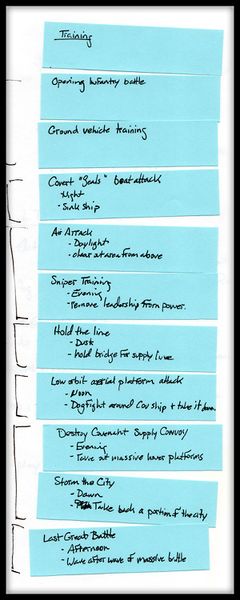 Training
Opening Infantry battle
Ground vehicle training
Covert "Seals" boat attack
- Night
- Sink ship
Air Attack
- Daylight
- clear out area from above
Sniper Training
- Evening
- Remove leadership from power.
Hold the line
- Dusk
- hold bridge for supply line
Low orbit aerial platform attack
- Noon
- Dogfight around Cov ship + take it down.
Destroy Covenant Supply Convoy
- Evening
- Take at massive hover platforms
Storm the City
- Dawn
- Take back a portion of the city
Last Great Battle
- Afternoon
- Wave after wave of massive battle